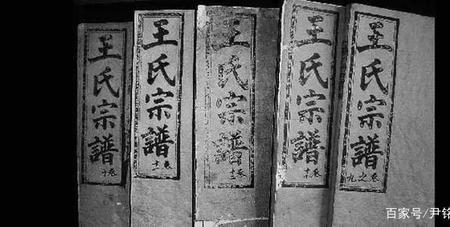 王氏宗譜
卷十
王氏宗譜
王氏宗譜
王氏宗譜
王氏宗譜
卷之九
百家号/尹铭